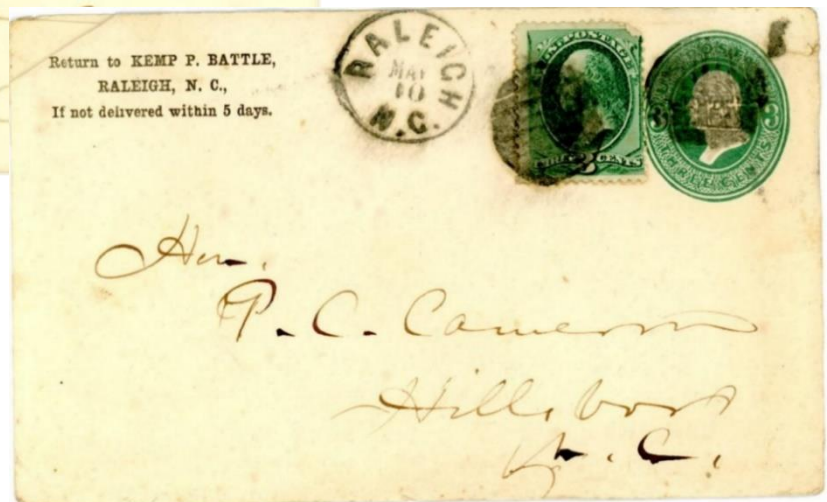 Return to KEMP P. BATTLE,
RALEIGH, N. C.,
If not delivered within 5 days.
RALEIGH
MAY
10
N.C.
U.S. POSTAGE
THREE 3 CENTS
3 3
THREE CENTS
Hon.
P. C. Cameron
Hillsboro
N. C.